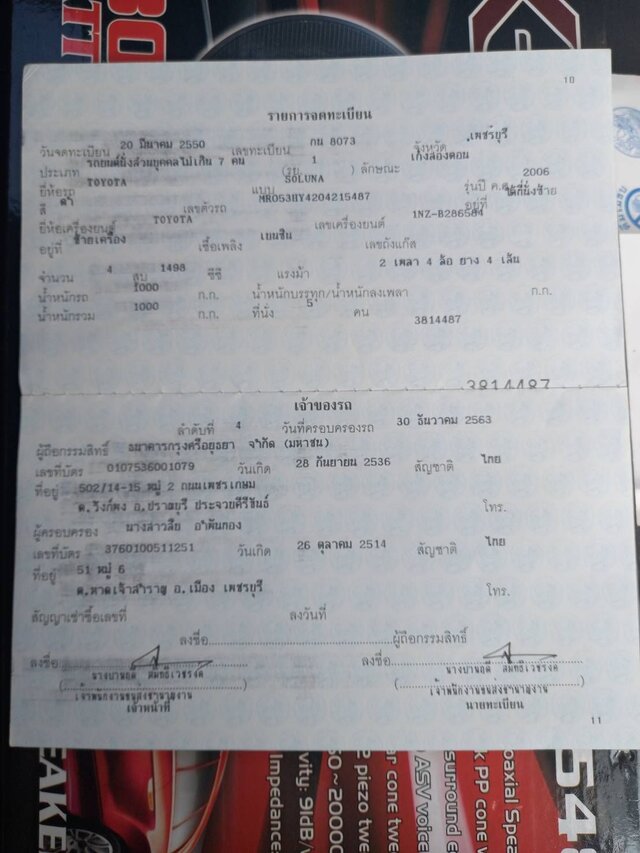 10
รายการจดทะเบียน
วันจดทะเบียน 20 มีนาคม 2550 เลขทะเบียน กน 8073 จังหวัด เพชรบุรี
ประเภท รถยนต์นั่งส่วนบุคคลไม่เกิน 7 คน (รย. 1 ) ลักษณะ เก๋งสองตอน
ยี่ห้อรถ TOYOTA แบบ SOLUNA รุ่นปี ค.ศ. 2006
สี ดำ เลขตัวรถ MR053HY4204215487 อยู่ที่ ใต้ที่นั่งซ้าย
ยี่ห้อเครื่องยนต์ TOYOTA เลขเครื่องยนต์ 1NZ-B286584
อยู่ที่ ซ้ายเครื่อง เชื้อเพลิง เบนซิน เลขถังแก๊ส
จำนวน 4 สูบ 1498 ซีซี แรงม้า 2 เพลา 4 ล้อ ยาง 4 เส้น
น้ำหนักรถ 1000 ก.ก. น้ำหนักบรรทุก/น้ำหนักลงเพลา ก.ก.
น้ำหนักรวม 1000 ก.ก. ที่นั่ง 5 คน
3814487
3814487
เจ้าของรถ
ลำดับที่ 4 วันที่ครอบครองรถ 30 ธันวาคม 2563
ผู้ถือกรรมสิทธิ์ ธนาคารกรุงศรีอยุธยา จำกัด (มหาชน)
เลขที่บัตร 0107536001079 วันเกิด 28 กันยายน 2536 สัญชาติ ไทย
ที่อยู่ 502/14-15 หมู่ 2 ถนนเพชรเกษม
ต.วังก์พง อ.ปราณบุรี ประจวบคีรีขันธ์ โทร.
ผู้ครอบครอง นางสาวลีย อำพันทอง
เลขที่บัตร 3760100511251 วันเกิด 26 ตุลาคม 2514 สัญชาติ ไทย
ที่อยู่ 51 หมู่ 6
ต.หาดเจ้าสำราญ อ.เมือง เพชรบุรี โทร.
สัญญาเช่าซื้อเลขที่ ลงวันที่
ลงชื่อ ผู้ถือกรรมสิทธิ์
ลงชื่อ ลงชื่อ
เจ้าพนักงานขนส่งชำนาญงาน เจ้าพนักงานขนส่งชำนาญงาน
เจ้าหน้าที่ นายทะเบียน
11